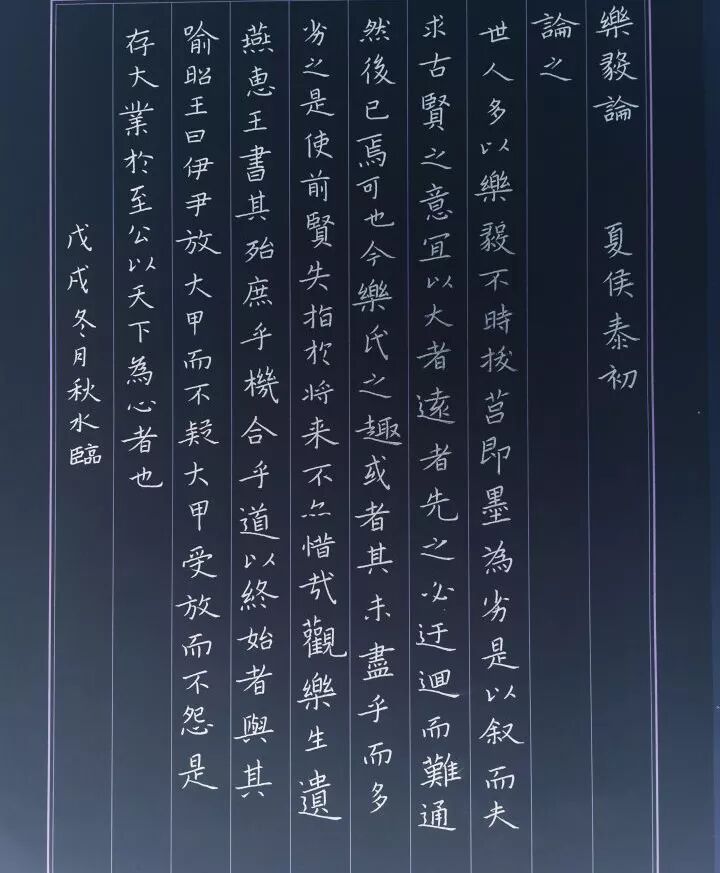 樂毅論 夏侯泰初
論之
世人多以樂毅不時拔莒即墨為劣是以叙而夫
求古賢之意宜以大者遠者先之必迂迴而難通
然後已焉可也今樂氏之趣或者其未盡乎而多
劣之是使前賢失指於将来不亦惜哉觀樂生遺
燕惠王書其殆庶乎機合乎道以終始者與其
喻昭王曰伊尹放大甲而不疑大甲受放而不怨是
存大業於至公以天下為心者也
戊戌冬月秋水臨